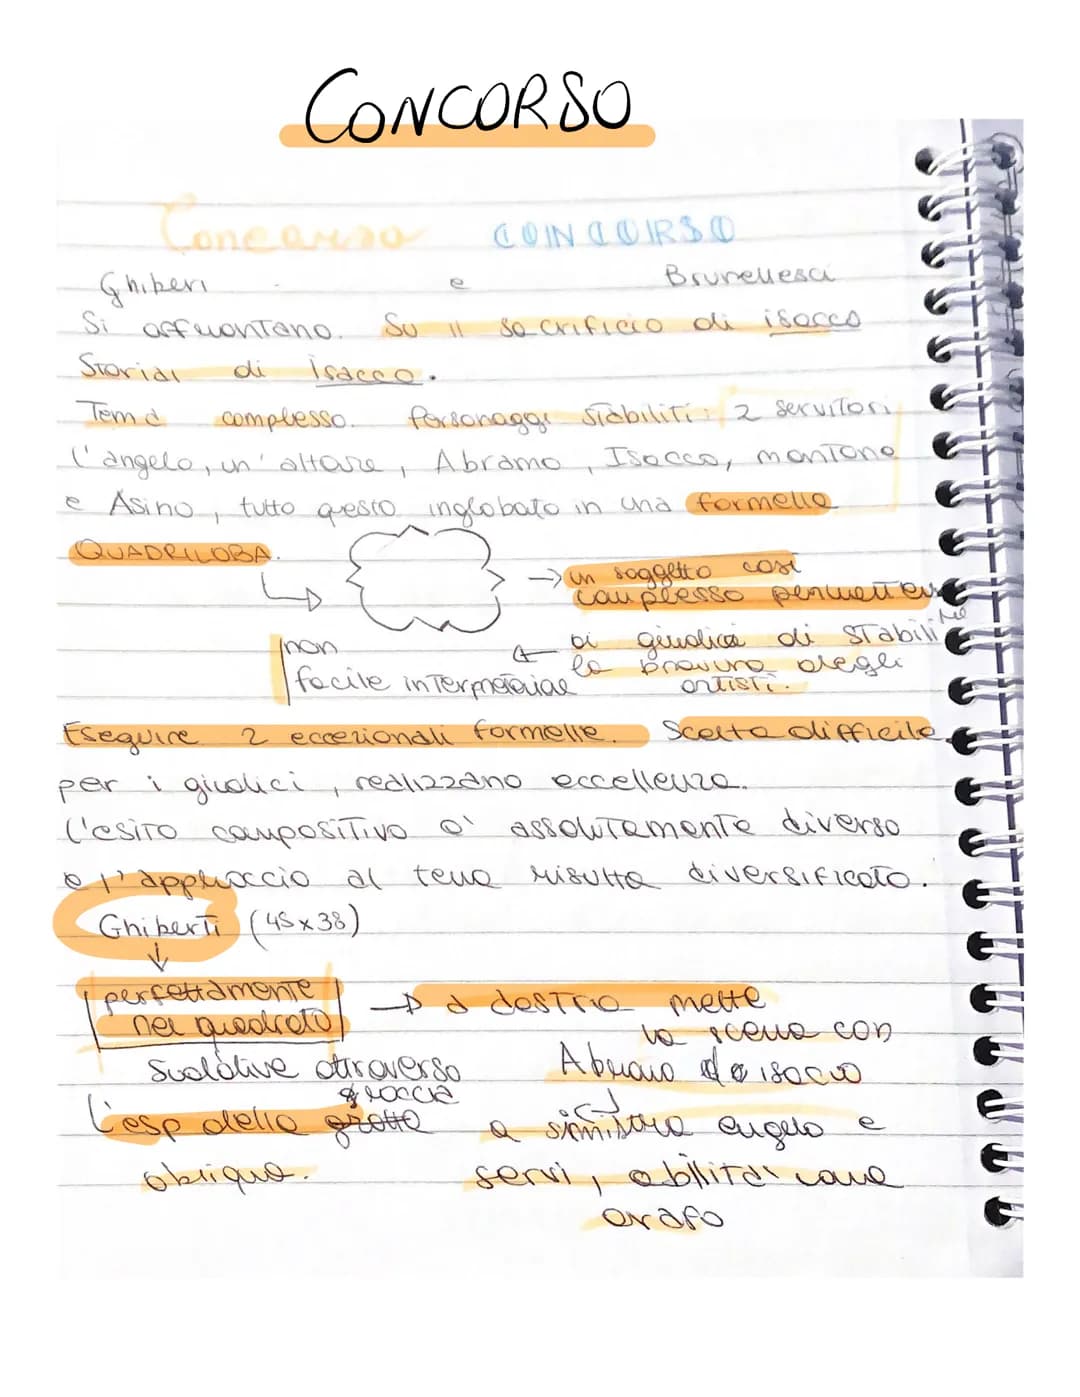 CONCORSO
Concorso CONCORSO
Ghiberi e Brunellesci
Si affrontano. Su il sacrificio di isacco
Storia di Isacco.
Tema complesso. Personaggi stabiliti: 2 servitori
l'angelo, un'altare, Abramo, Isacco, montone
e Asino, tutto questo inglobato in una formella
QUADRILOBA.
→ un soggetto così
complesso permetteva
ai giudici di stabilire
la bravura degli
artisti.
non
facile interpretarlae
Eseguire 2 eccezionali formelle. Scelta difficile
per i giudici, realizzano eccellenza.
l'esito compositivo è assolutamente diverso
e l'approccio al tema risulta diversificato.
Ghiberti (45x38)
perfettamente → a destra mette
nel quadrato la scena con
attraverso Abramo isacco
roccia
L'esp della grotta a sinistra angelo e
obliqua. servi, abilità come
orafo